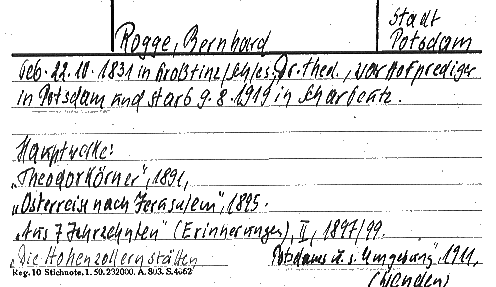 Stadt
Rogge, Bernhard Potsdam
Geb. 22.10.1831 in Großtinz/Schles., Dr. theol., war Hofprediger
in Potsdam und starb 9.8.1919 in Scharbeutz.
Hauptwerke:
„Theodor Körner", 1891,
„Osterreise nach Jerusalem", 1895.
„Aus 7 Jahrzehnten" (Erinnerungen), II, 1897/99.
„Die Hohenzollernstätten Potsdams u. s. Umgebung", 1911.
Reg. 10 Stichnote. 1. 50. 232000. A. 803. S. 4662
(wenden)